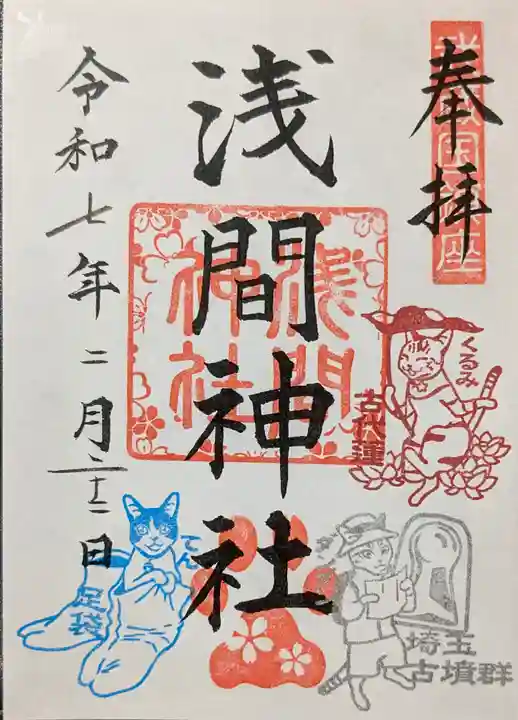 奉拝
浅間神社
浅間神社
令和七年二月二十二日
くるみ
古代蓮
てん
足袋
埼玉
古墳群